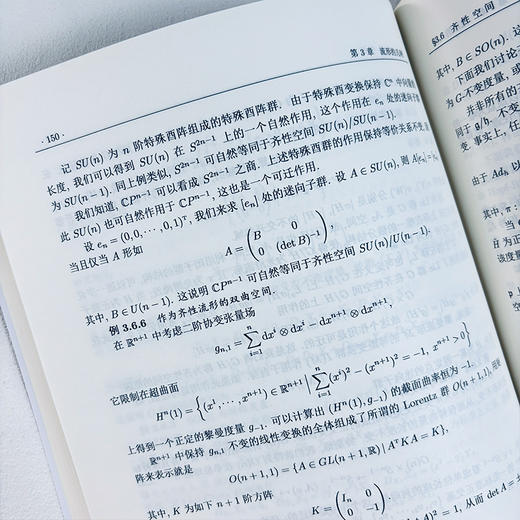 第 3 章 流形的几何
· 150 ·
记 SU(n) 为 n 阶特殊酉阵组成的特殊酉阵群. 由于特殊酉变换保持 ℂⁿ 中向量的
长度, 我们可以得到 SU(n) 在 S²ⁿ⁻¹ 上的一个自然作用, 这个作用在 eₙ 处的迷向子群
为 SU(n−1). 同上例类似, S²ⁿ⁻¹ 可自然等同于齐性空间 SU(n)/SU(n−1).
我们知道, ℂPⁿ⁻¹ 可以看成 S²ⁿ⁻¹ 之商. 上述特殊酉群的作用保持等价关系不变, 因
此 SU(n) 也可自然作用于 ℂPⁿ⁻¹, 这也是一个可迁作用.
设 eₙ = (0,0,⋯,0,1)ᵀ, 我们来求 [eₙ] 处的迷向子群. 设 A∈SU(n), 则 A[eₙ]=[eₙ]
当且仅当 A 形如
A = (B 0
0 (det B)⁻¹),
其中, B∈U(n−1). 这说明 ℂPⁿ⁻¹ 可自然等同于齐性空间 SU(n)/U(n−1).
例 3.6.6 作为齐性流形的双曲空间.
在 ℝⁿ⁺¹ 中考虑二阶协变张量场
gₙ,₁ = ∑ᵢ₌₁ⁿ dxⁱ ⊗ dxⁱ − dxⁿ⁺¹ ⊗ dxⁿ⁺¹,
它限制在超曲面
Hⁿ(1) = {(x¹,⋯,xⁿ⁺¹) ∈ ℝⁿ⁺¹ | ∑ᵢ₌₁ⁿ (xⁱ)² − (xⁿ⁺¹)² = −1, xⁿ⁺¹ > 0}
上得到一个正定的黎曼度量 g₋₁. 可以计算出 (Hⁿ(1), g₋₁) 的截面曲率恒为 −1.
ℝⁿ⁺¹ 中保持 gₙ,₁ 不变的线性变换的全体组成了所谓的 Lorentz 群 O(n+1,1), 用矩
阵来表示就是
O(n+1,1) = {A∈GL(n+1,ℝ) | AᵀKA = K},
其中, K 为如下 n+1 阶方阵
K = (Iₙ 0
0 −1).
§3.6 齐性空间
其中, B∈SO(n). 这
下面我们讨论
为 G-不变度量, 或
并非所有的
同于 g/h. 不变
变. 事实上, 任
由于 Adₕ 以
其中, π: